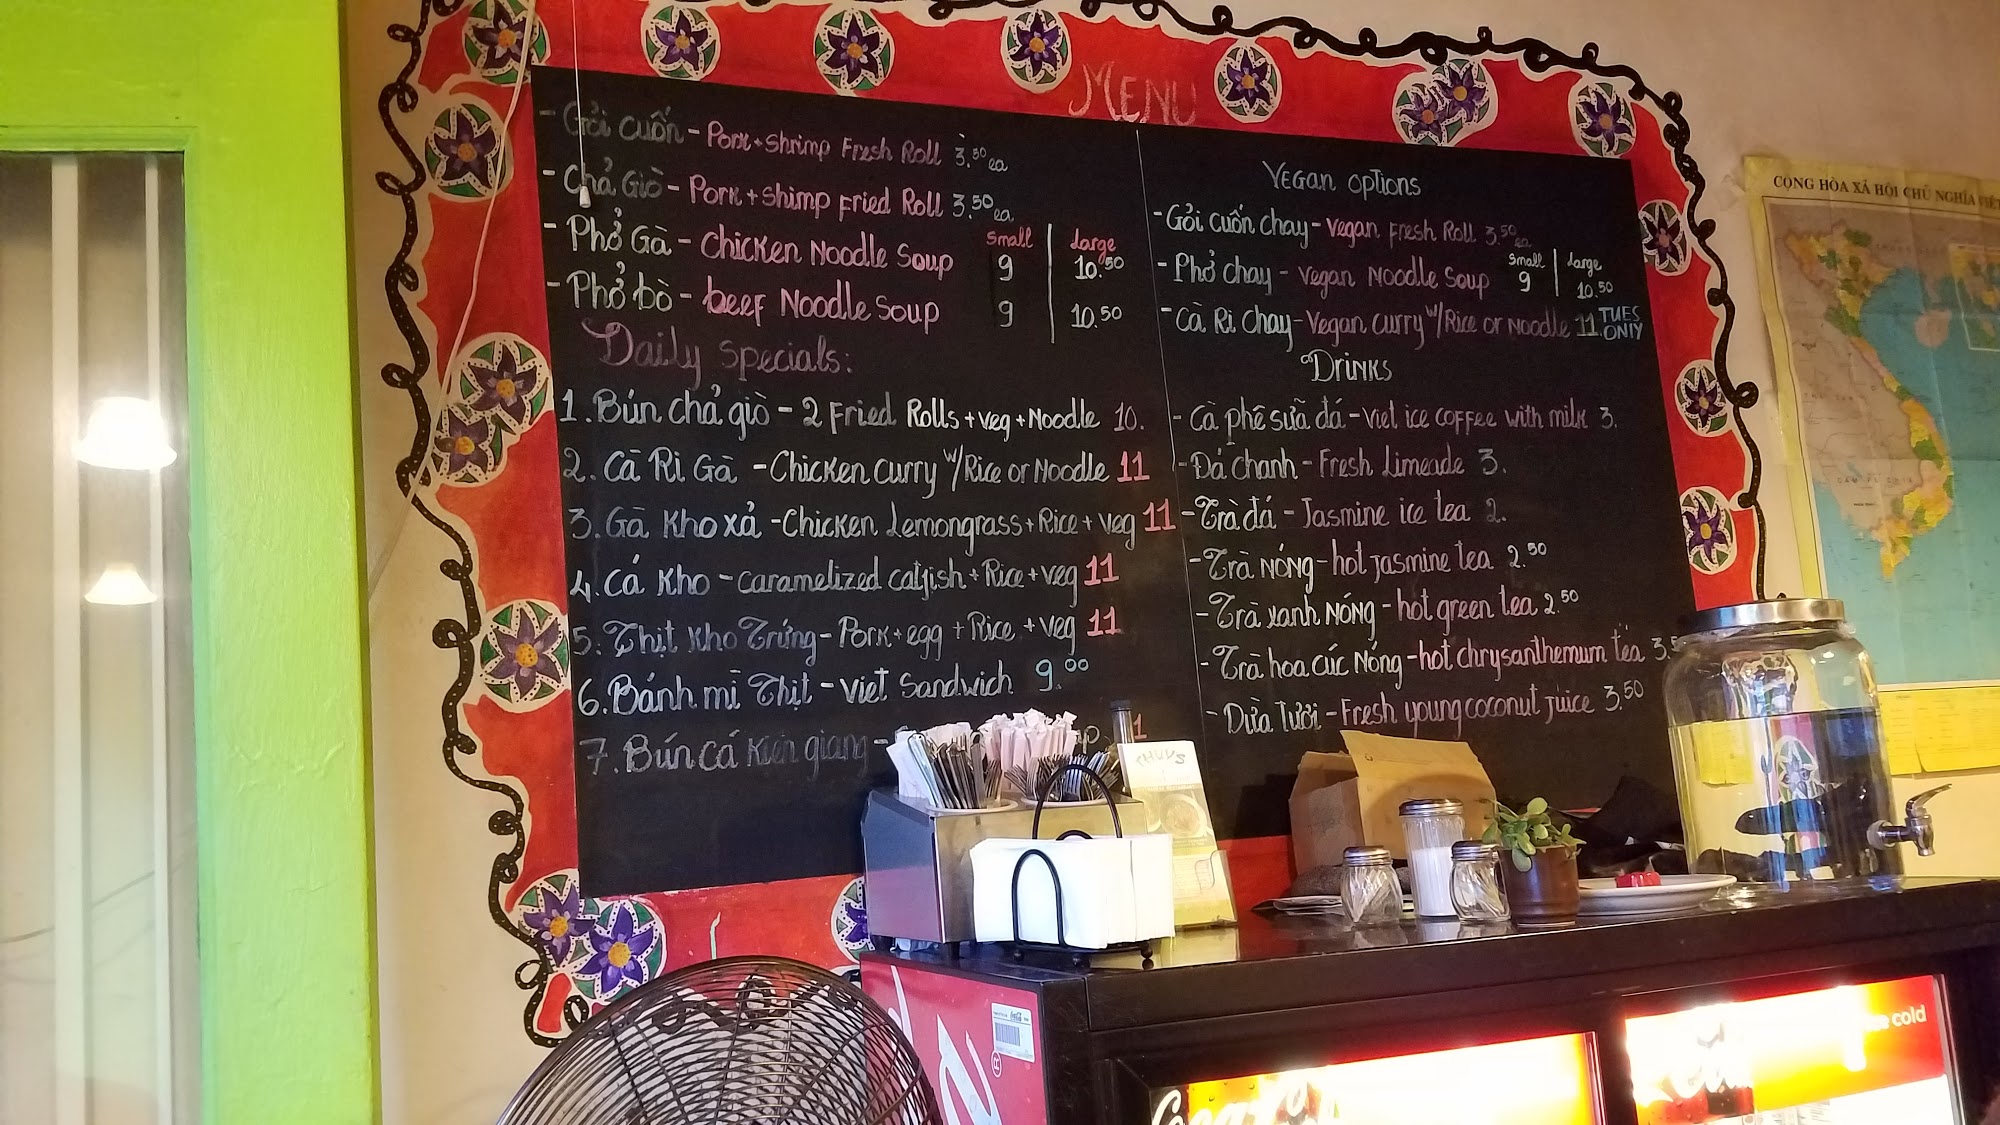 MENU
- Gỏi cuốn - Pork + Shrimp Fresh Roll 3.50 ea
- Chả Giò - Pork + Shimp Fried Roll 3.50 ea
Small | Large
- Phở Gà - Chicken Noodle Soup 9 | 10.50
- Phở bò - beef Noodle Soup 9 | 10.50
Daily Specials:
1. Bún chả giò - 2 Fried Rolls + veg + Noodle 10.
2. Cà Ri Gà - Chicken curry w/ Rice or Noodle 11
3. Gà Kho xả - Chicken Lemongrass + Rice + veg 11
4. Cá Kho - Caramelized catfish + Rice + veg 11
5. Thịt Kho Trứng - Pork + egg + Rice + veg 11
6. Bánh mì Thịt - Viet Sandwich 9.00
7. Bún cá Kiên giang -
Vegan Options
- Gỏi cuốn chay - Vegan Fresh Roll 3.50 ea
Small | Large
- Phở chay - Vegan Noodle Soup 9 | 10.50
- Cà Ri Chay - Vegan curry w/ Rice or Noodle 11 TUES ONLY
Drinks
- Cà phê sữa đá - Viet ice coffee with milk 3.
- Đá chanh - Fresh Limeade 3.
- Trà đá - Jasmine ice tea 2.
- Trà NÓNG - hot jasmine tea 2.50
- Trà xanh NÓNG - hot green tea 2.50
- Trà hoa cúc Nóng - hot chrysanthemum tea 3.5
- Dừa Tươi - Fresh young coconut juice 3.50
CỘNG HÒA XÃ HỘI CHỦ NGHĨA VIỆT
THUY'S
Coca-Cola
cold